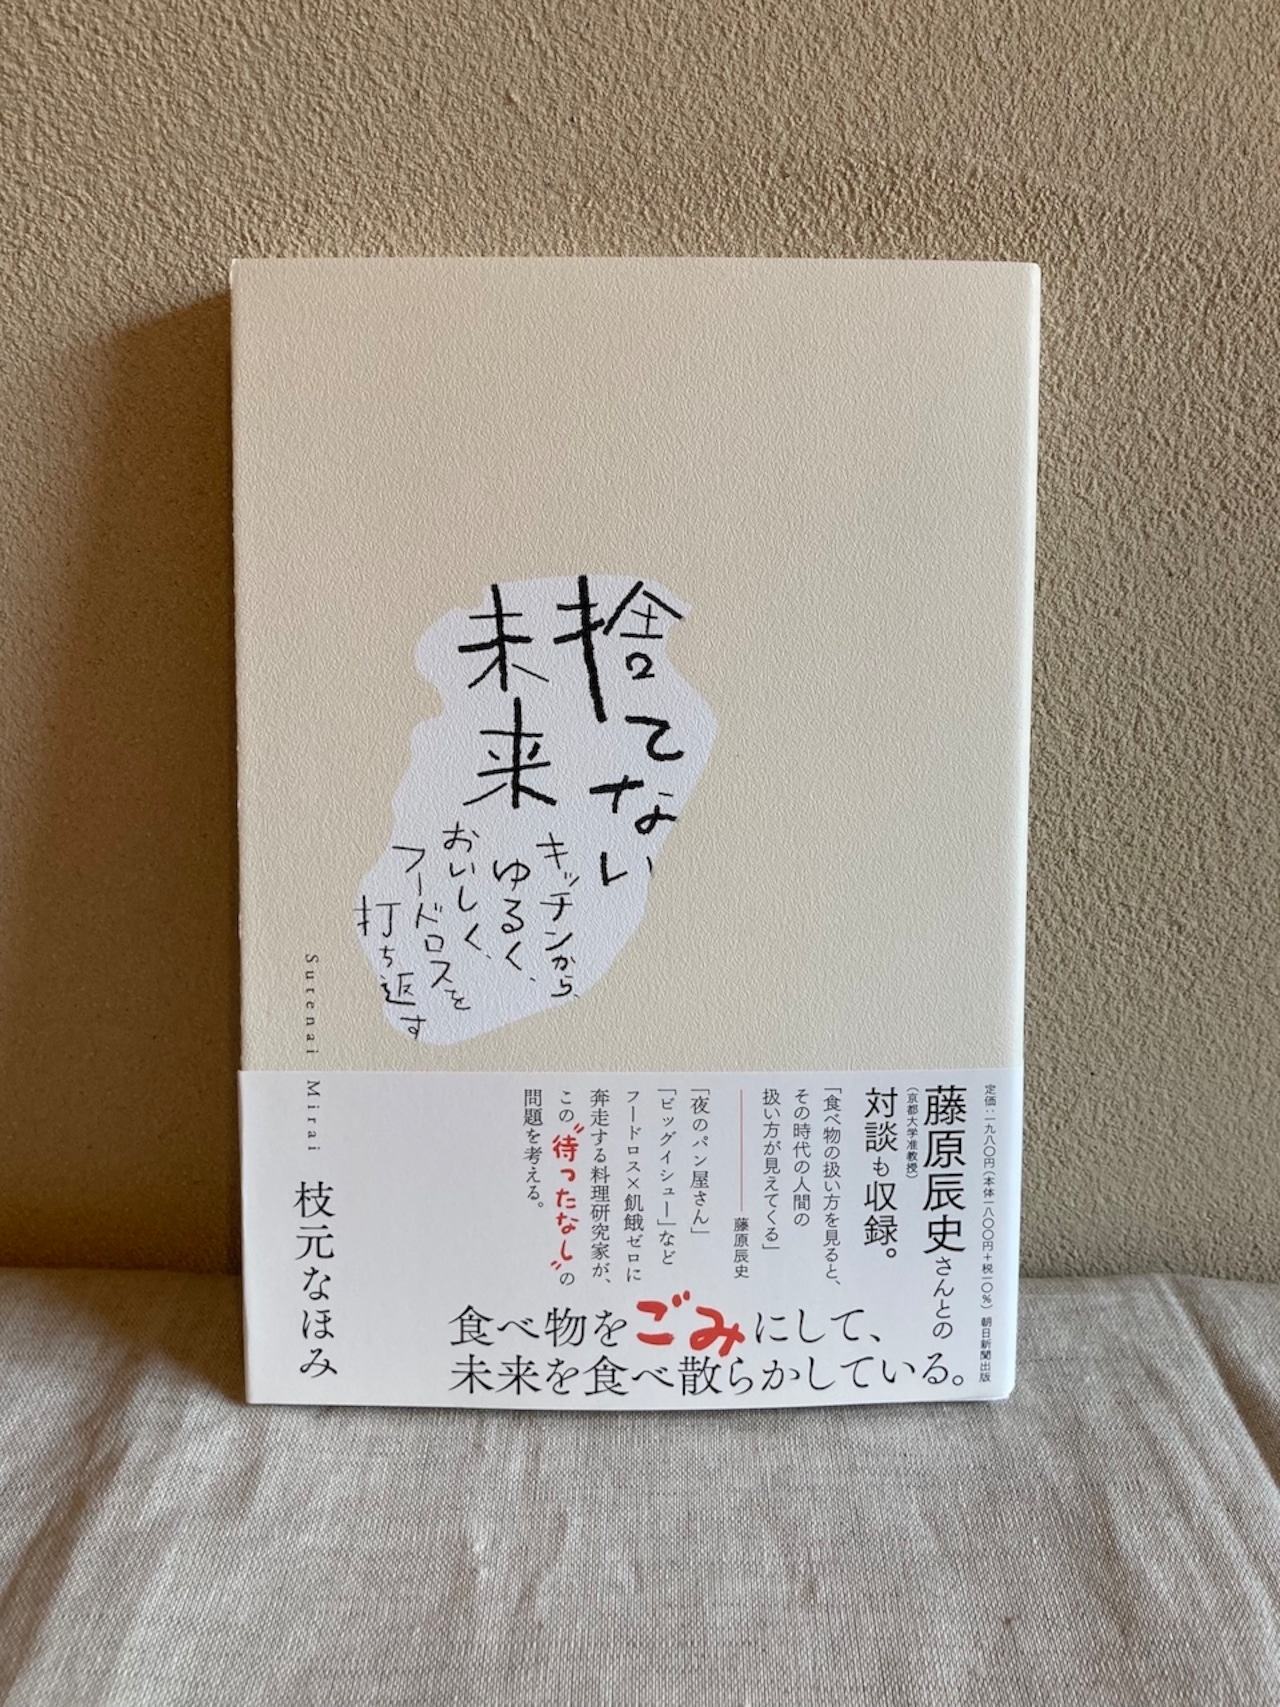 捨てない
未来
キッチンから、
ゆるく、
おいしく、
フードロスを
打ち返す
Sutenai Mirai
枝元なほみ
定価：一九八〇円（本体一八〇〇円＋税一〇％） 朝日新聞出版
藤原辰史さんとの
（京都大学准教授）
対談も収録。
「食べ物の扱い方を見ると、
その時代の人間の
扱い方が見えてくる」
藤原辰史
「夜のパン屋さん」
「ビッグイシュー」など
フードロス×飢餓ゼロに
奔走する料理研究家が、
この“待ったなし”の
問題を考える。
食べ物をごみにして、
未来を食べ散らかしている。